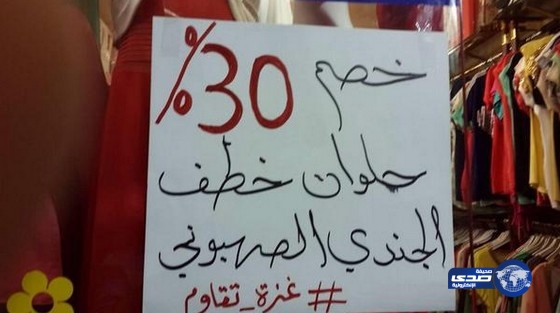 خصم 30%
حلوان خطف
الجندي الصهيوني
#غزة_تقاوم
صحيفة
صدى
الإلكترونية